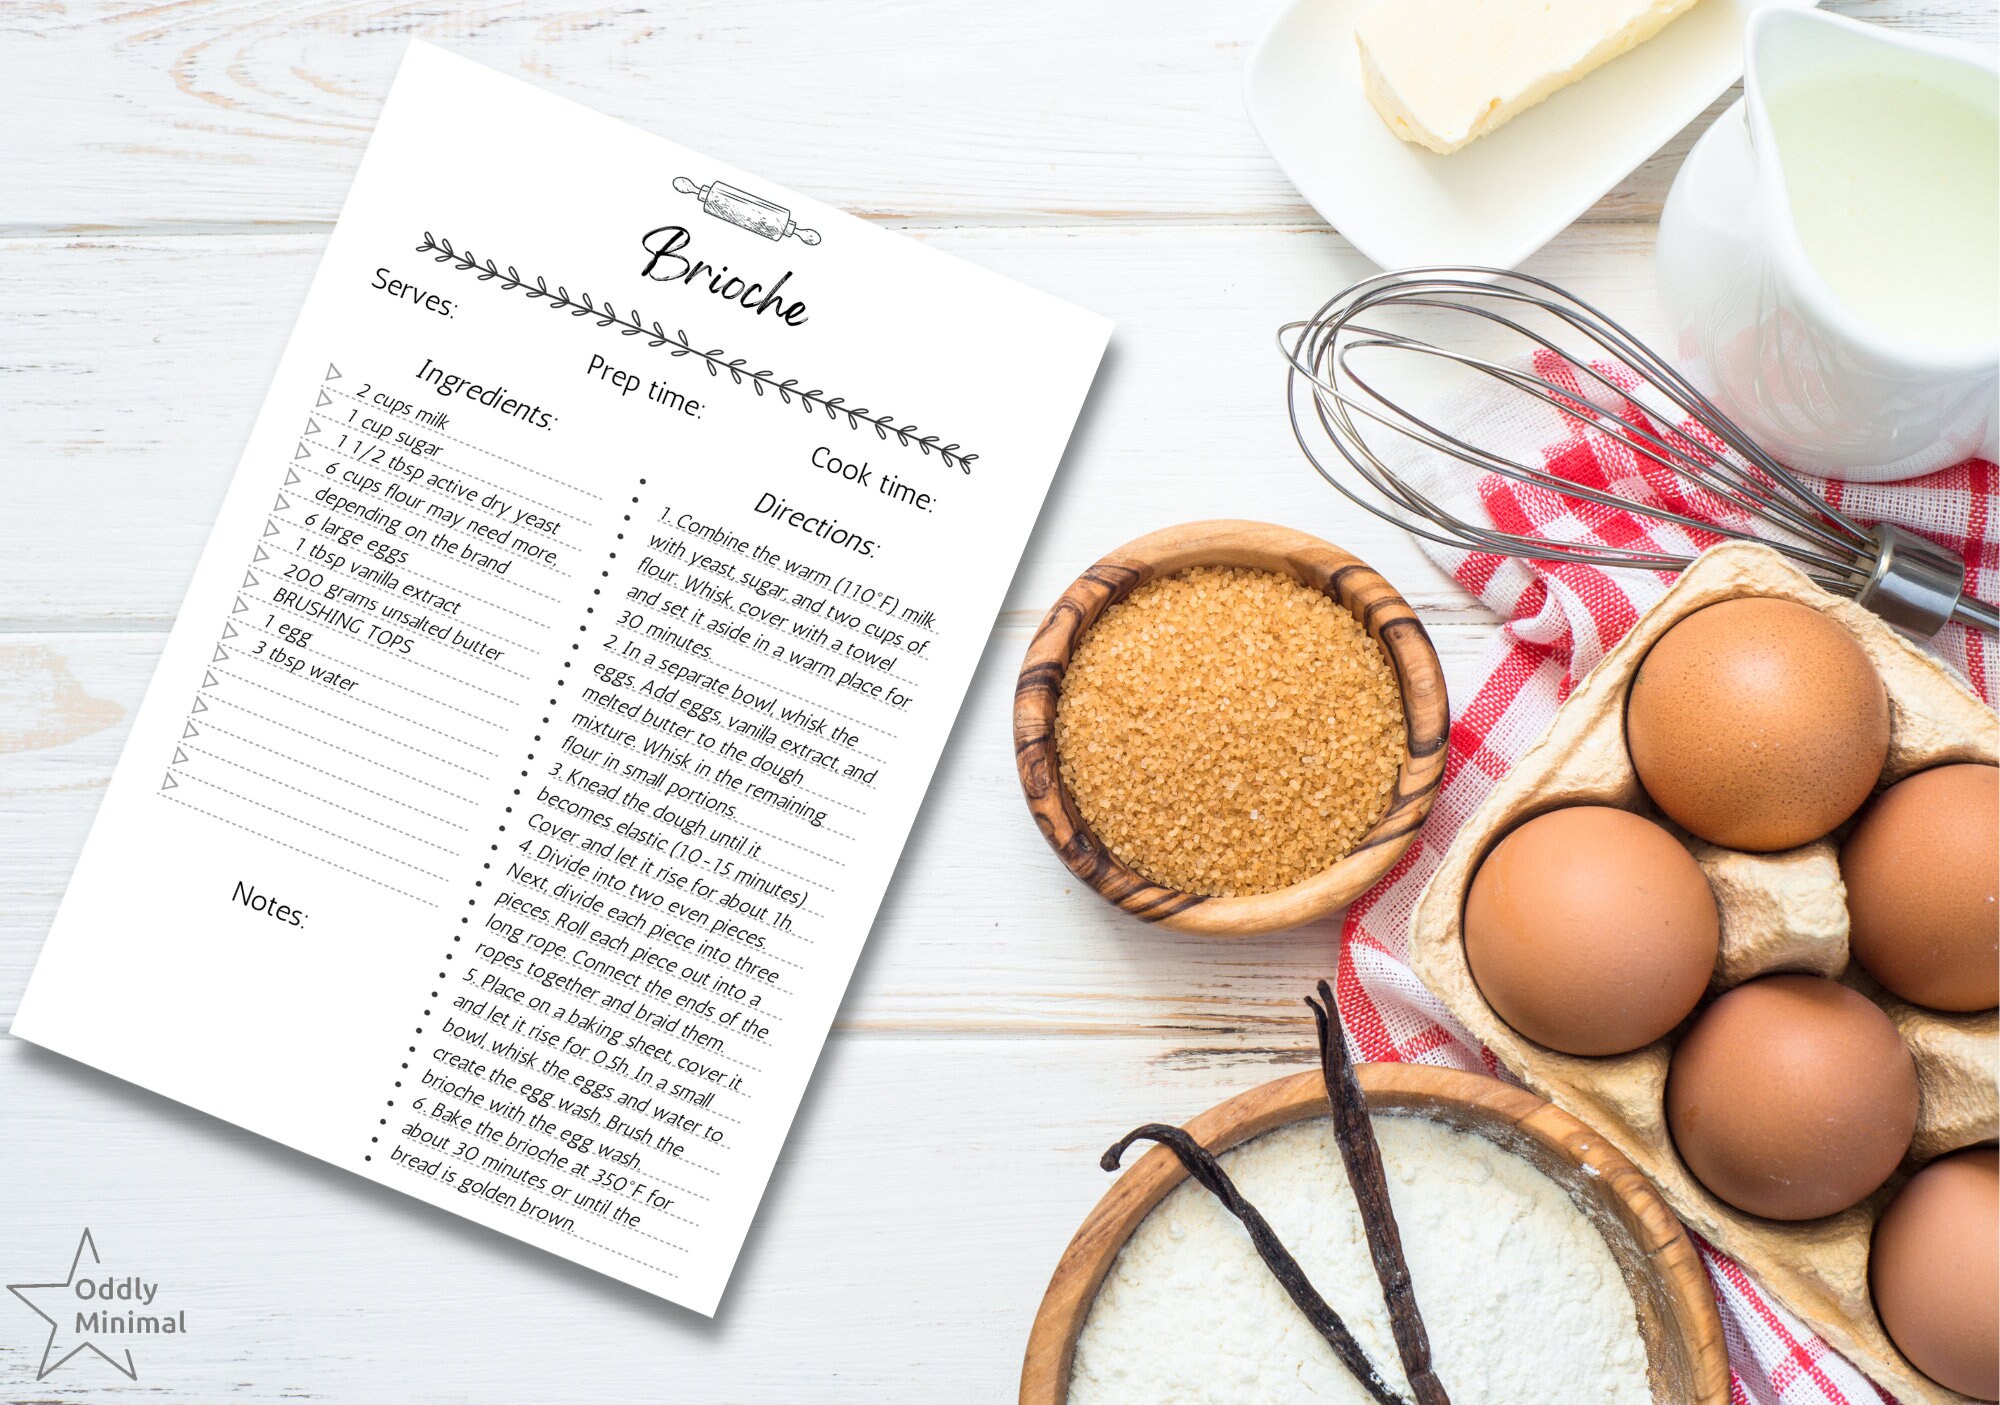 Brioche
Serves:
Prep time:
Cook time:
Ingredients:
2 cups milk
1 cup sugar
1 1/2 tbsp active dry yeast
6 cups flour may need more,
depending on the brand
6 large eggs
1 tbsp vanilla extract
200 grams unsalted butter
BRUSHING TOPS
1 egg
3 tbsp water
Notes:
Directions:
1. Combine the warm (110°F) milk
with yeast, sugar, and two cups of
flour. Whisk, cover with a towel
and set it aside in a warm place for
30 minutes.
2. In a separate bowl, whisk the
eggs. Add eggs, vanilla extract, and
melted butter to the dough
mixture. Whisk in the remaining
flour in small portions.
3. Knead the dough until it
becomes elastic (10-15 minutes)
Cover and let it rise for about 1h.
4. Divide into two even pieces.
Next, divide each piece into three
pieces. Roll each piece out into a
long rope. Connect the ends of the
ropes together and braid them.
5. Place on a baking sheet, cover it
and let it rise for 0.5h. In a small
bowl, whisk the eggs and water to
create the egg wash. Brush the
brioche with the egg wash.
6. Bake the brioche at 350°F for
about 30 minutes or until the
bread is golden brown.
Oddly
Minimal